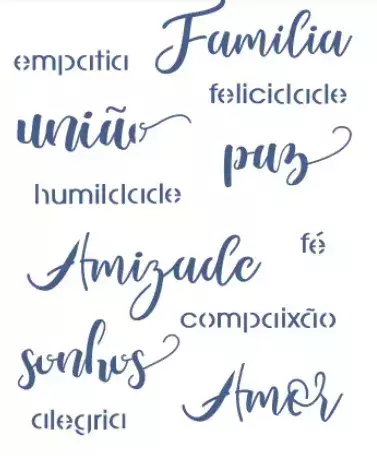 Familia
empatia
felicidade
união
paz
humildade
fé
Amizade
compaixão
sonhos
Amor
alegria